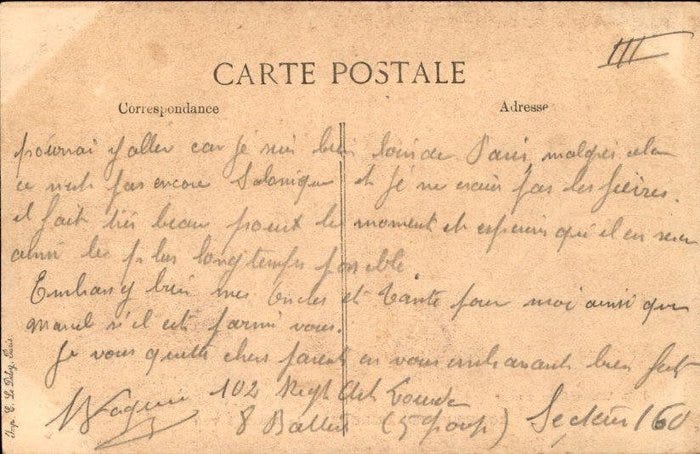 III
CARTE POSTALE
Correspondance
Adresse
pourrai y aller car je suis bien loin de Paris malgré cela
ce n'est pas encore Salonique et je ne crains pas les fièvres.
il fait très beau pour le moment et esperons qu'il en sera
ainsi le plus longtemps possible.
Embrassez bien mes Oncles et Tante pour moi ainsi que
Marcel s'il est parmi vous.
Je vous quitte chers parents en vous embrassant bien fort
102 Regt Art Lourde
8 Batterie (5 group) Secteur 160
Imp. E. Le Deley, Paris.